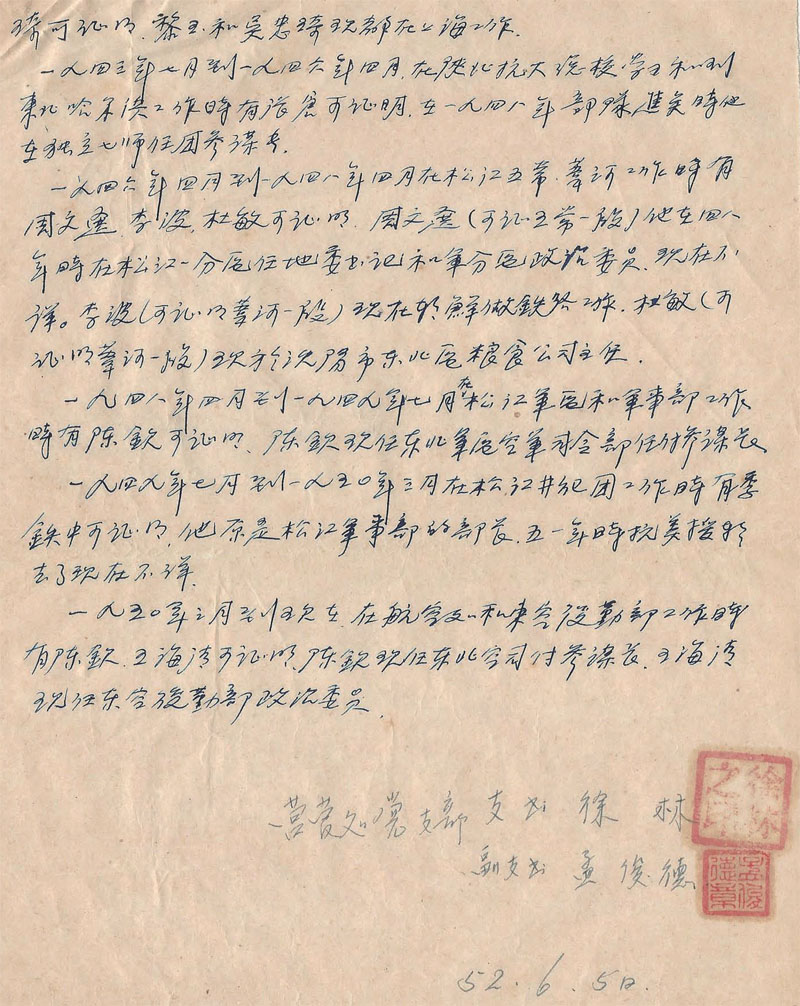 琦可证明.黎玉和吴忠琦现都在上海工作.
一九四三年七月到一九四六年四月,在陕北抗大总校学习和到
东北哈尔滨工作時有張 可证明.在一九四八年部隊進关時他
在独立七师任团参谋长.
一九四六年四月到一九四八年四月在松江五常.葦河工作時有
周文 .李波.杜敏可证明.周文 (可证五常一段)他在四八
年時在松江一分區任地委书记和軍分區政治委员.现在不
详。李波(可证明葦河一段)现在朝鮮做鉄路工作.杜敏(可
证明葦河一段)现於沈陽市东北區粮食公司主任.
一九四八年四月到一九四九年七月在松江軍區和軍事部工作
時有陈欽可证明.陈欽现任东北軍區空軍司令部任付参谋长
一九四九年七月到一九五〇年三月在松江井 团工作時有季
鉄中可证明,他原是松江軍事部的部长.五一年時抗美援朝
去了现在不详.
一九五〇年三月到现在.在航 和東空後勤部工作時
有陈欽.王海清可证明.陈欽现任东北空司付参谋长.王海清
现任东空後勤部政治委员.
营 处党支部 支书 徐 林
副支书 孟俊德
徐林之印
孟俊德章
52.6.5日.